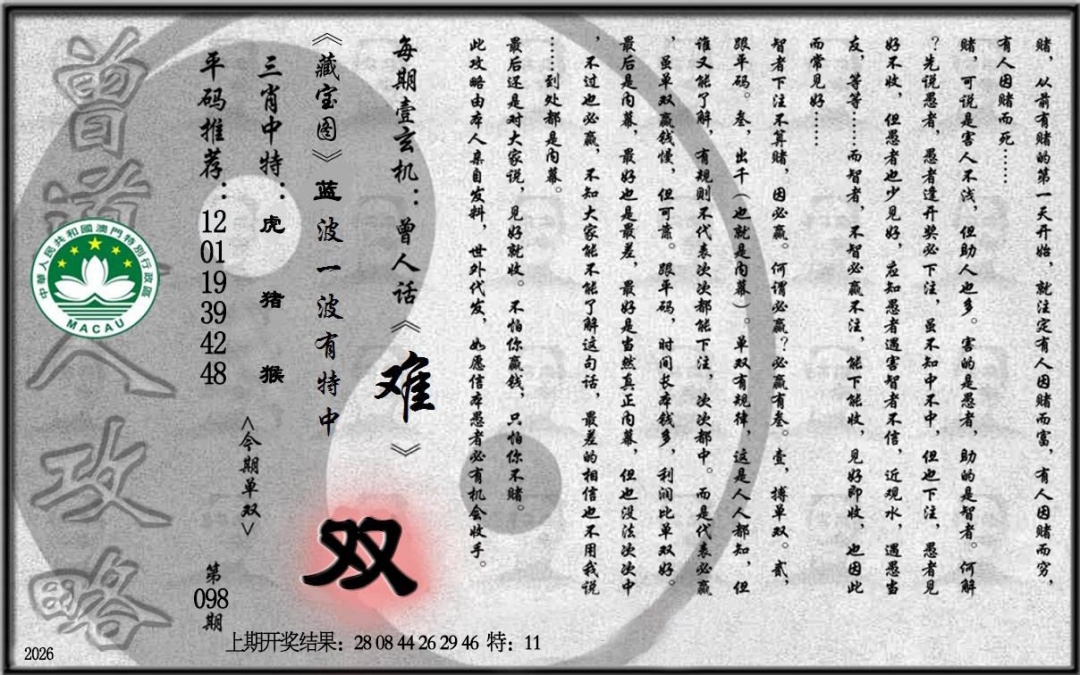 赌，从前有赌的第一天开始，就注定有人因赌而富，有人因赌而穷，
有人因赌而死……
赌，可说是害人不浅，但助人也多。害的是愚者，助的是智者。何解
？先说愚者，愚者逢开奖必下注，虽不知中不中，但也下注，愚者见
好不收，但愚者也少见好，应知愚者遇害智者不信，近观水，遇愚当
友，等等……而智者，不智必赢不注，能下能收，见好即收，也因此
而常见好……
智者下注不算赌，因必赢。何谓必赢？必赢有叁。壹，搏单双。贰，
跟平码。叁，出千（也就是内幕）。单双有规律，这是人人都知，但
谁又能了解，有规则不代表次次都能下注，次次都中。而是代表必赢
，虽单双赢钱慢，但可靠。跟平码，时间长本钱多，利润比单双好。
最后是内幕，最好也是最差，最好是当然真正内幕，但也没法次次中
，不过也必赢，不知大家能不能了解这句话，最差的相信也不用我说
……到处都是内幕。
最后还是对大家说，见好就收。不怕你赢钱，只怕你不赌。
此攻略由本人亲自发料，世外代发，如愿信本愚者必有机会收手。
每期壹玄机：曾人话《难》
《藏宝图》蓝波一波有特中
双
三肖中特：虎 猪 猴
<今期单双>
平码推荐：12 01 19 39 42 48
第098期
曾道人攻略
中華人民共和國澳門特別行政區
MACAU
上期开奖结果：28 08 44 26 29 46 特：11
2026